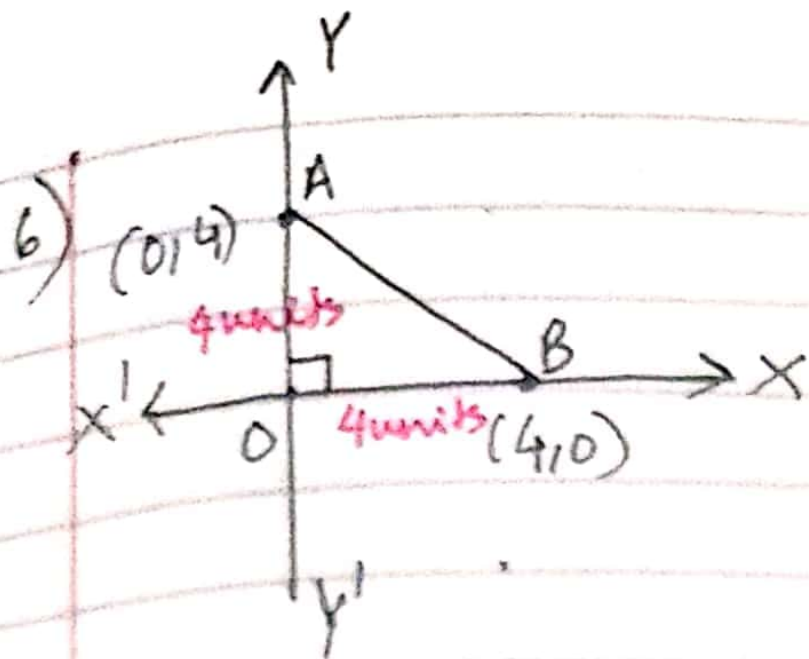 Y
A
6) (0,4)
4units
B
X' X
O 4units (4,0)
Y'